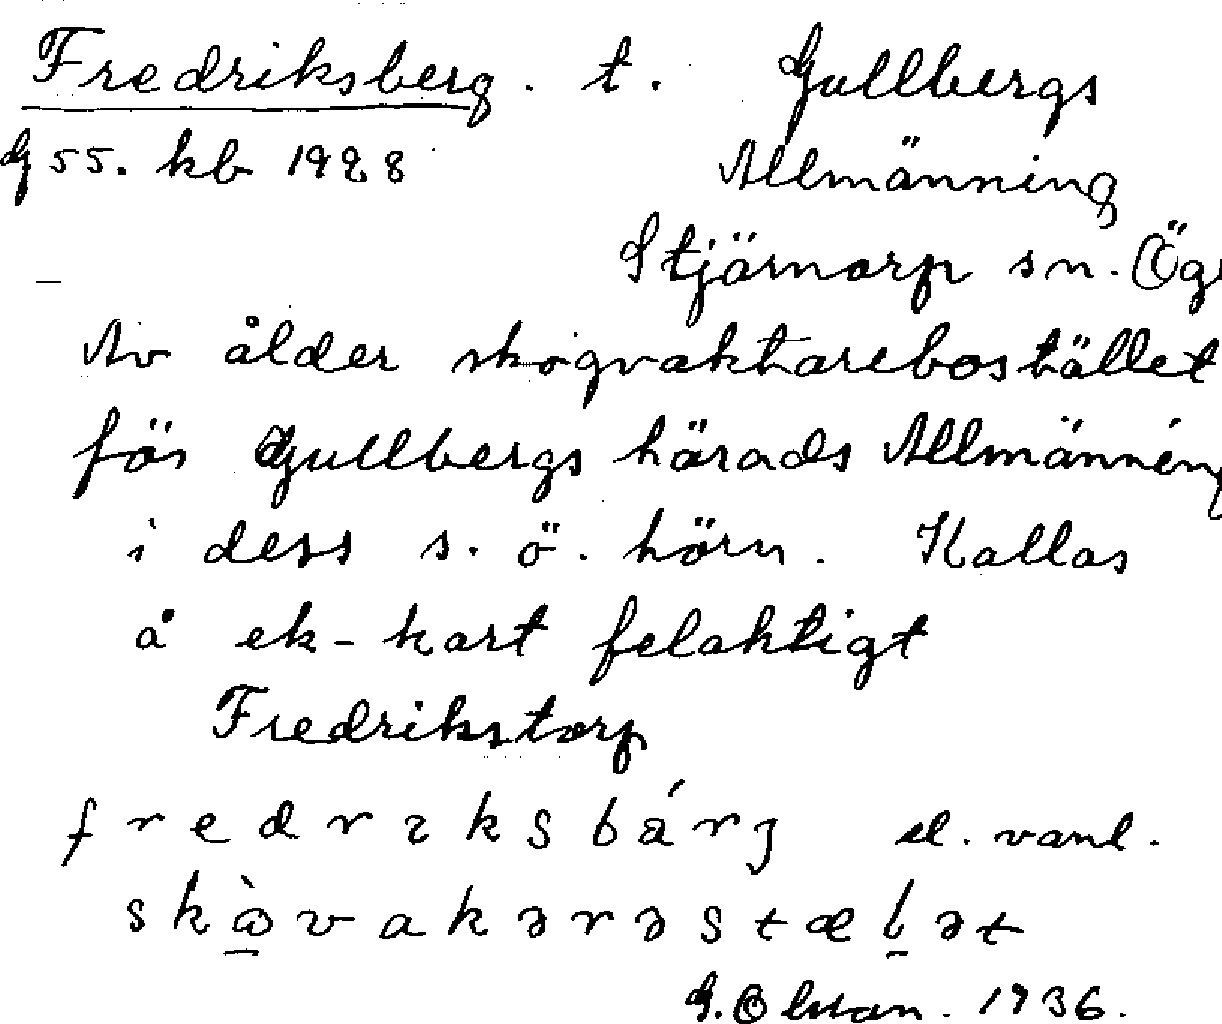 Fredriksberg. t. Gullbergs
G 55. kb 1928 Allmänning
Stjärnorp sn. Ög
Av ålder skogvaktarebostället
för Gullbergs härads Allmänning
i dess s. ö. hörn. Kallas
å ek-kart felaktigt
Fredrikstorp
fredrɩksbárj el. vanl.
skὼvakərəstæḷət
G. Olsson. 1936.